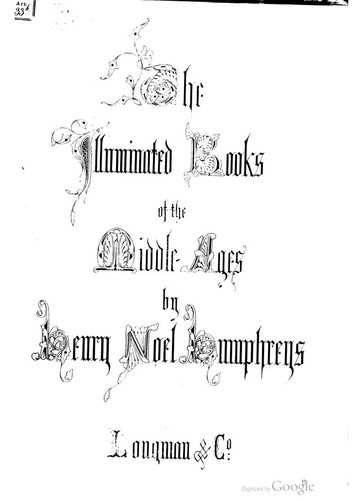 The
Illuminated Books
of the
Middle-Ages
by
Henry Noel Humphreys
Longman & Co.
Digitized by Google